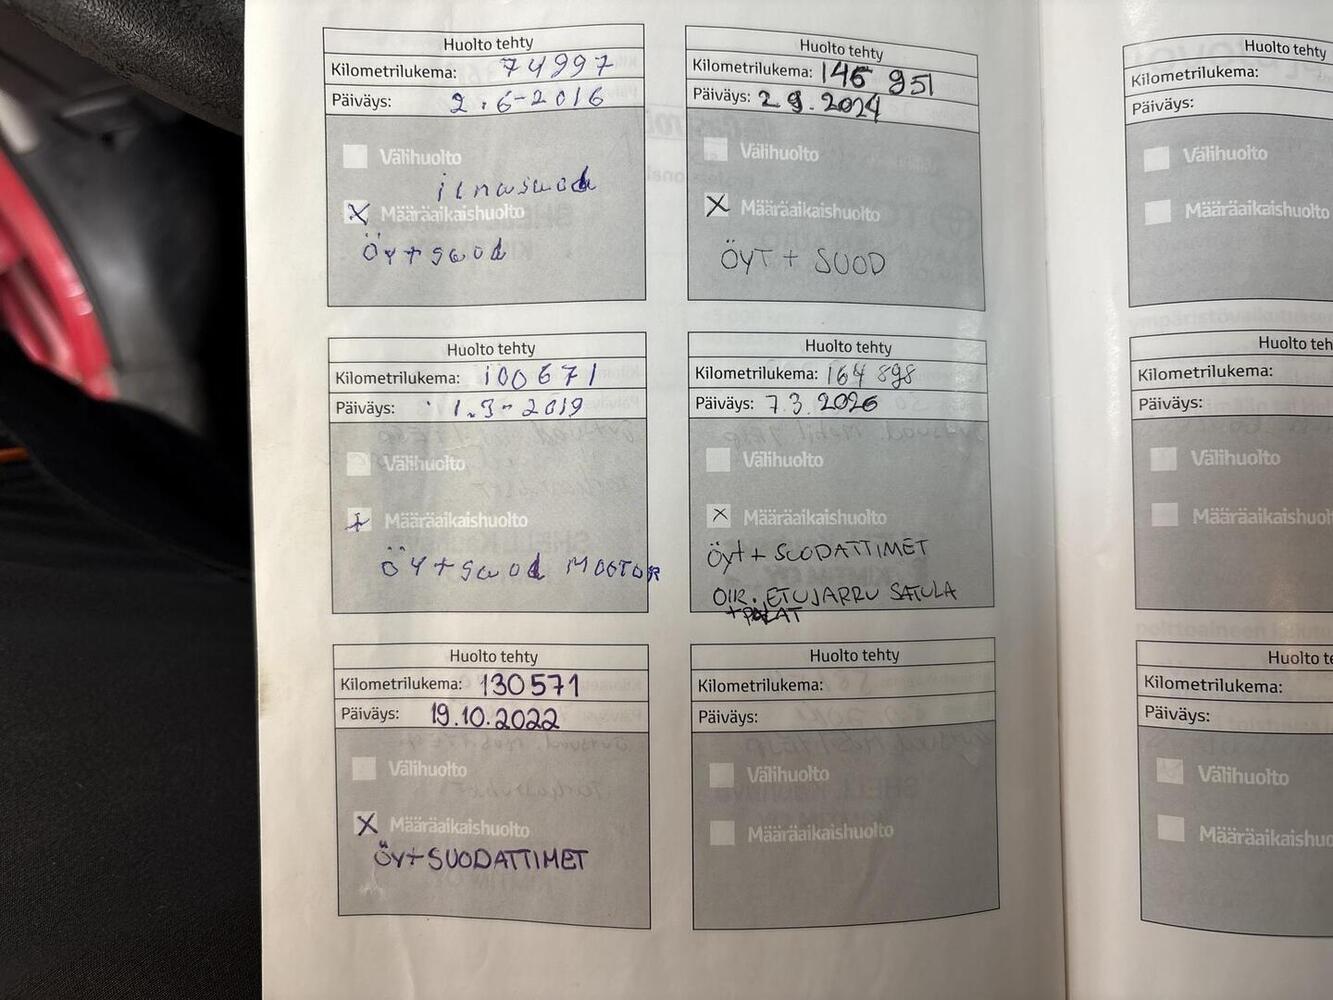 Huolto tehty
Kilometrilukema: 74997
Päiväys: 2.6-2016
Välihuolto
ilmasuod
Määräaikaishuolto
Öy+suod
Huolto tehty
Kilometrilukema: 100671
Päiväys: 1.3-2019
Välihuolto
Määräaikaishuolto
Öy+suod MOOTOR
Huolto tehty
Kilometrilukema: 130571
Päiväys: 19.10.2022
Välihuolto
Määräaikaishuolto
Öyt+SUODATTIMET
Huolto tehty
Kilometrilukema: 146 951
Päiväys: 2.9.2024
Välihuolto
Määräaikaishuolto
ÖYT + SUOD
Huolto tehty
Kilometrilukema: 164 898
Päiväys: 7.3.2026
Välihuolto
Määräaikaishuolto
Öyt + SUODATTIMET
OIK. ETUJARRU SATULA
+PALAT
Huolto tehty
Kilometrilukema:
Päiväys:
Välihuolto
Määräaikaishuolto
Huolto tehty
Kilometrilukema:
Päiväys:
Välihuolto
Määräaikaishuolto
Huolto teh
Kilometrilukema:
Päiväys:
Välihuolto
Määräaikaishuol
Huolto te
Kilometrilukema:
Päiväys:
Välihuolto
Määräaikaishuo